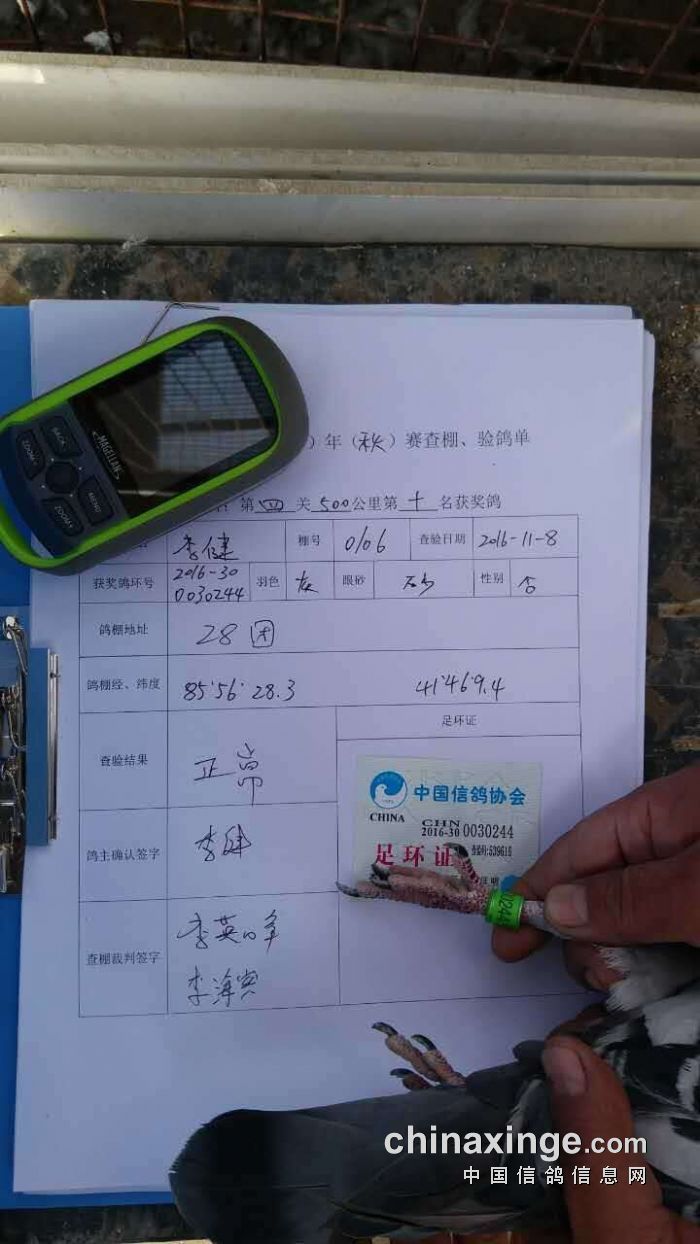 MAGELLAN
BACK
MENU
ZOOM-
ZOOM+
）年（秋）赛查棚、验鸽单
第 四 关 500公里第 十 名获奖鸽
李健 棚号 0106 查验日期 2016-11-8
获奖鸽环号 2016-30 0030244 羽色 灰 眼砂 砂 性别
鸽棚地址 28团
鸽棚经、纬度 85°56′28.3 41°46′9.4
足环证
查验结果 正常
中国信鸽协会
CHINA CHN
2016-30 0030244
足环证
鸽主确认签字 李健
0244
查棚裁判签字
chinaxinge.com
中国信鸽信息网